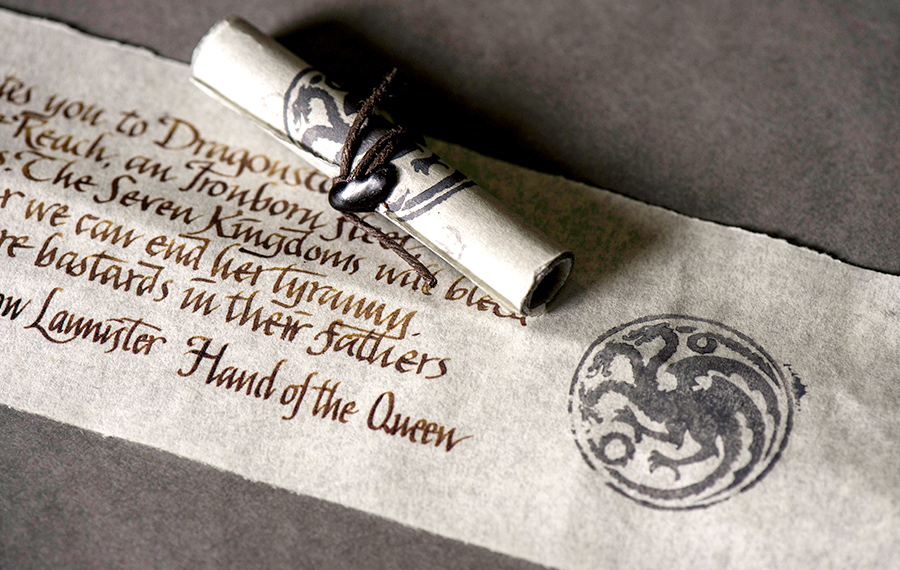 you to Dragonsto
Reach, an Ironborn fleet
The Seven Kingdoms will bleed
we can end her tyranny.
bastards in their fathers
Lannister
Hand of the Queen